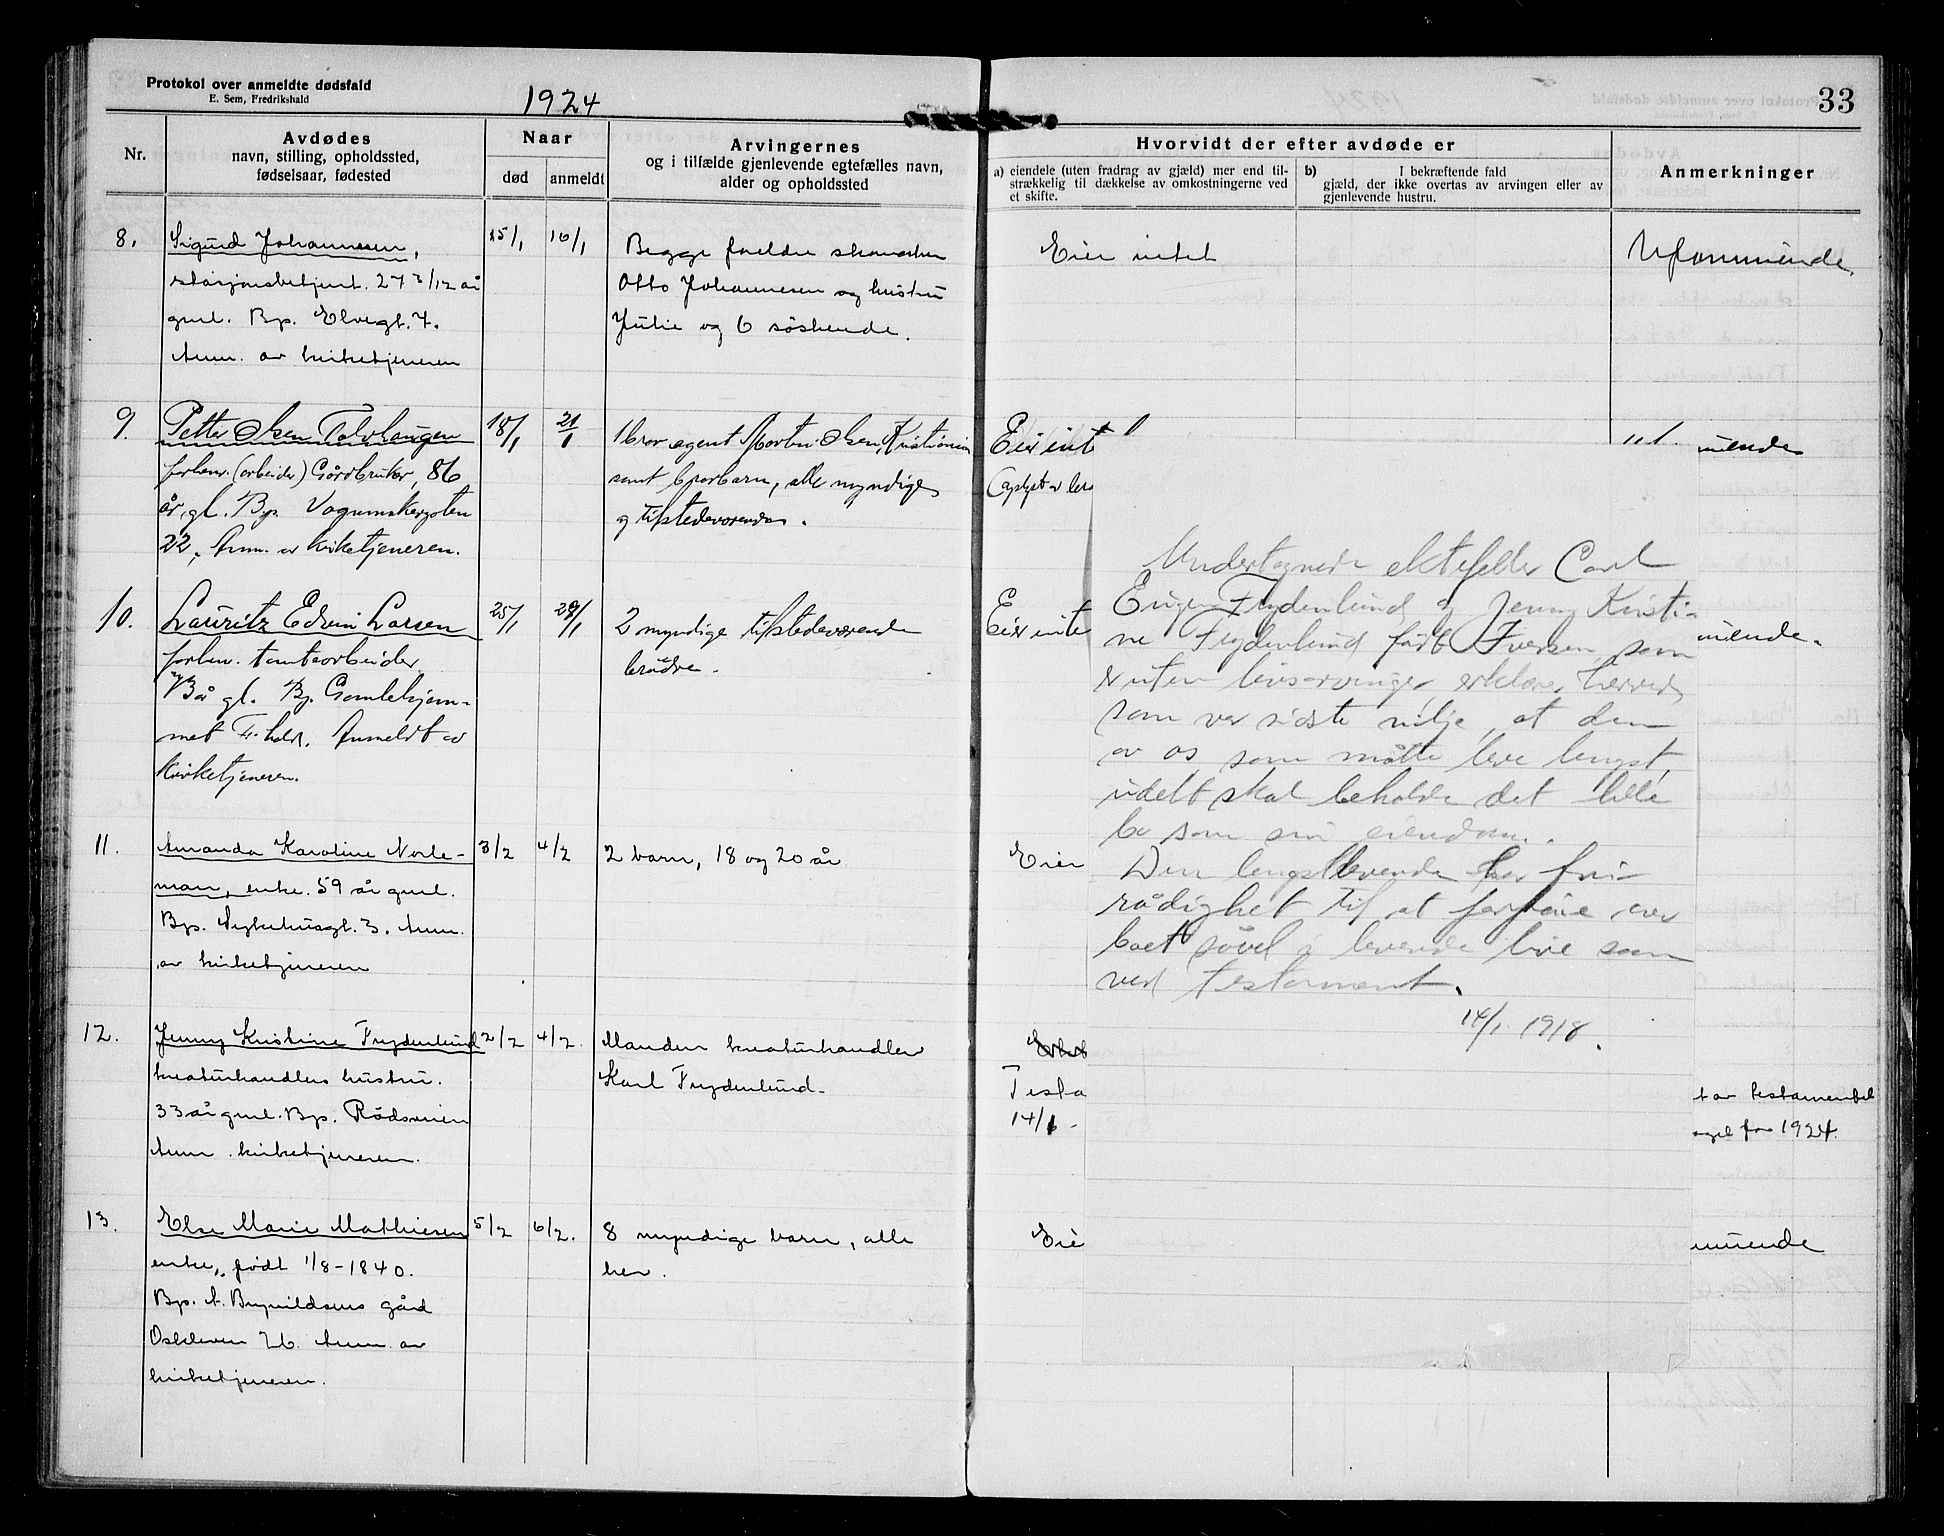 Protokol over anmeldte dødsfald
E. Sem, Fredrikshald
1924
33
Nr.
Avdødes
navn, stilling, opholdssted,
fødselsaar, fødested
Naar
død
anmeldt
Arvingernes
og i tilfælde gjenlevende egtefælles navn,
alder og opholdssted
Hvorvidt der efter avdøde er
a) eiendele (uten fradrag av gjæld) mer end til-
strækkelig til dækkelse av omkostningerne ved
et skifte.
b) I bekræftende fald
gjæld, der ikke overtas av arvingen eller av
gjenlevende hustru.
Anmerkninger
8.
Sigurd Johannesen,
stasjonsbetjent. 27 3/12 år
gml. Bp. Elvegt. 7.
Anm. av kirketjeneren
15/1
16/1
Begge foreldre
Otto Johannesen og hustru
Julie og 6 søskende.
Eier intet
Uformuende.
9.
Petter Olsen Tolvhaugen
forhenv. (arbeider) Gårdbruker, 86
år gl. Bp. Vognmakergaten
22, Anm. av kirketjeneren.
18/1
21/1
1 bror agent Morten Olsen, Kristiania
samt brorbarn, alle myndige
og tilstedeværende.
Eier int
uende
10.
Lauritz Edvin Larsen
forhen. tomtearbeider
år gl. Bp. Gamlehjem-
met F.hald. Anmeldt av
kirketjeneren.
25/1
29/1
2 myndige tilstedeværende
brødre.
Eier inte
uende.
11.
Amanda Karoline Norle-
man, enke. 59 år gml.
Bp. Sykehusgt. 3. Anm.
av kirketjeneren
3/2
4/2
2 barn, 18 og 20 år
Eier
12.
Jenny Kristine Frydenlund
kreaturhandlers hustru.
33 år gml. Bp. Rødsveien
Anm. kirketjeneren.
2/2
4/2.
Manden kreaturhandler
Karl Frydenlund.
Testa
14/1 -
t av testamentet
for 1924.
13.
Else Marie Mathiesen
enke, født 1/8-1840.
Bp. A. Brynildsens gård
Oskleven 26. Anm. av
kirketjeneren.
5/2
6/2.
8 myndige barn, alle
her.
Eie
muende
Undertegnede ektefelder Carl
Eugen Frydenlund og Jenny Kristi-
ne Frydenlund født Iversen som
er uten livsarvinger, erklærer herved
som vor sidste vilje, at den
av os som måtte leve lengst,
udelt skal beholde det hele
bo som sin eiendom.
Den lengstlevende har fri
rådighet til at forføie over
boet såvel i levende live som
ved testament.
14/1 1918.